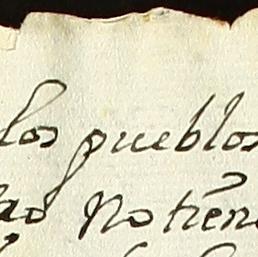 los pueblos
no tien